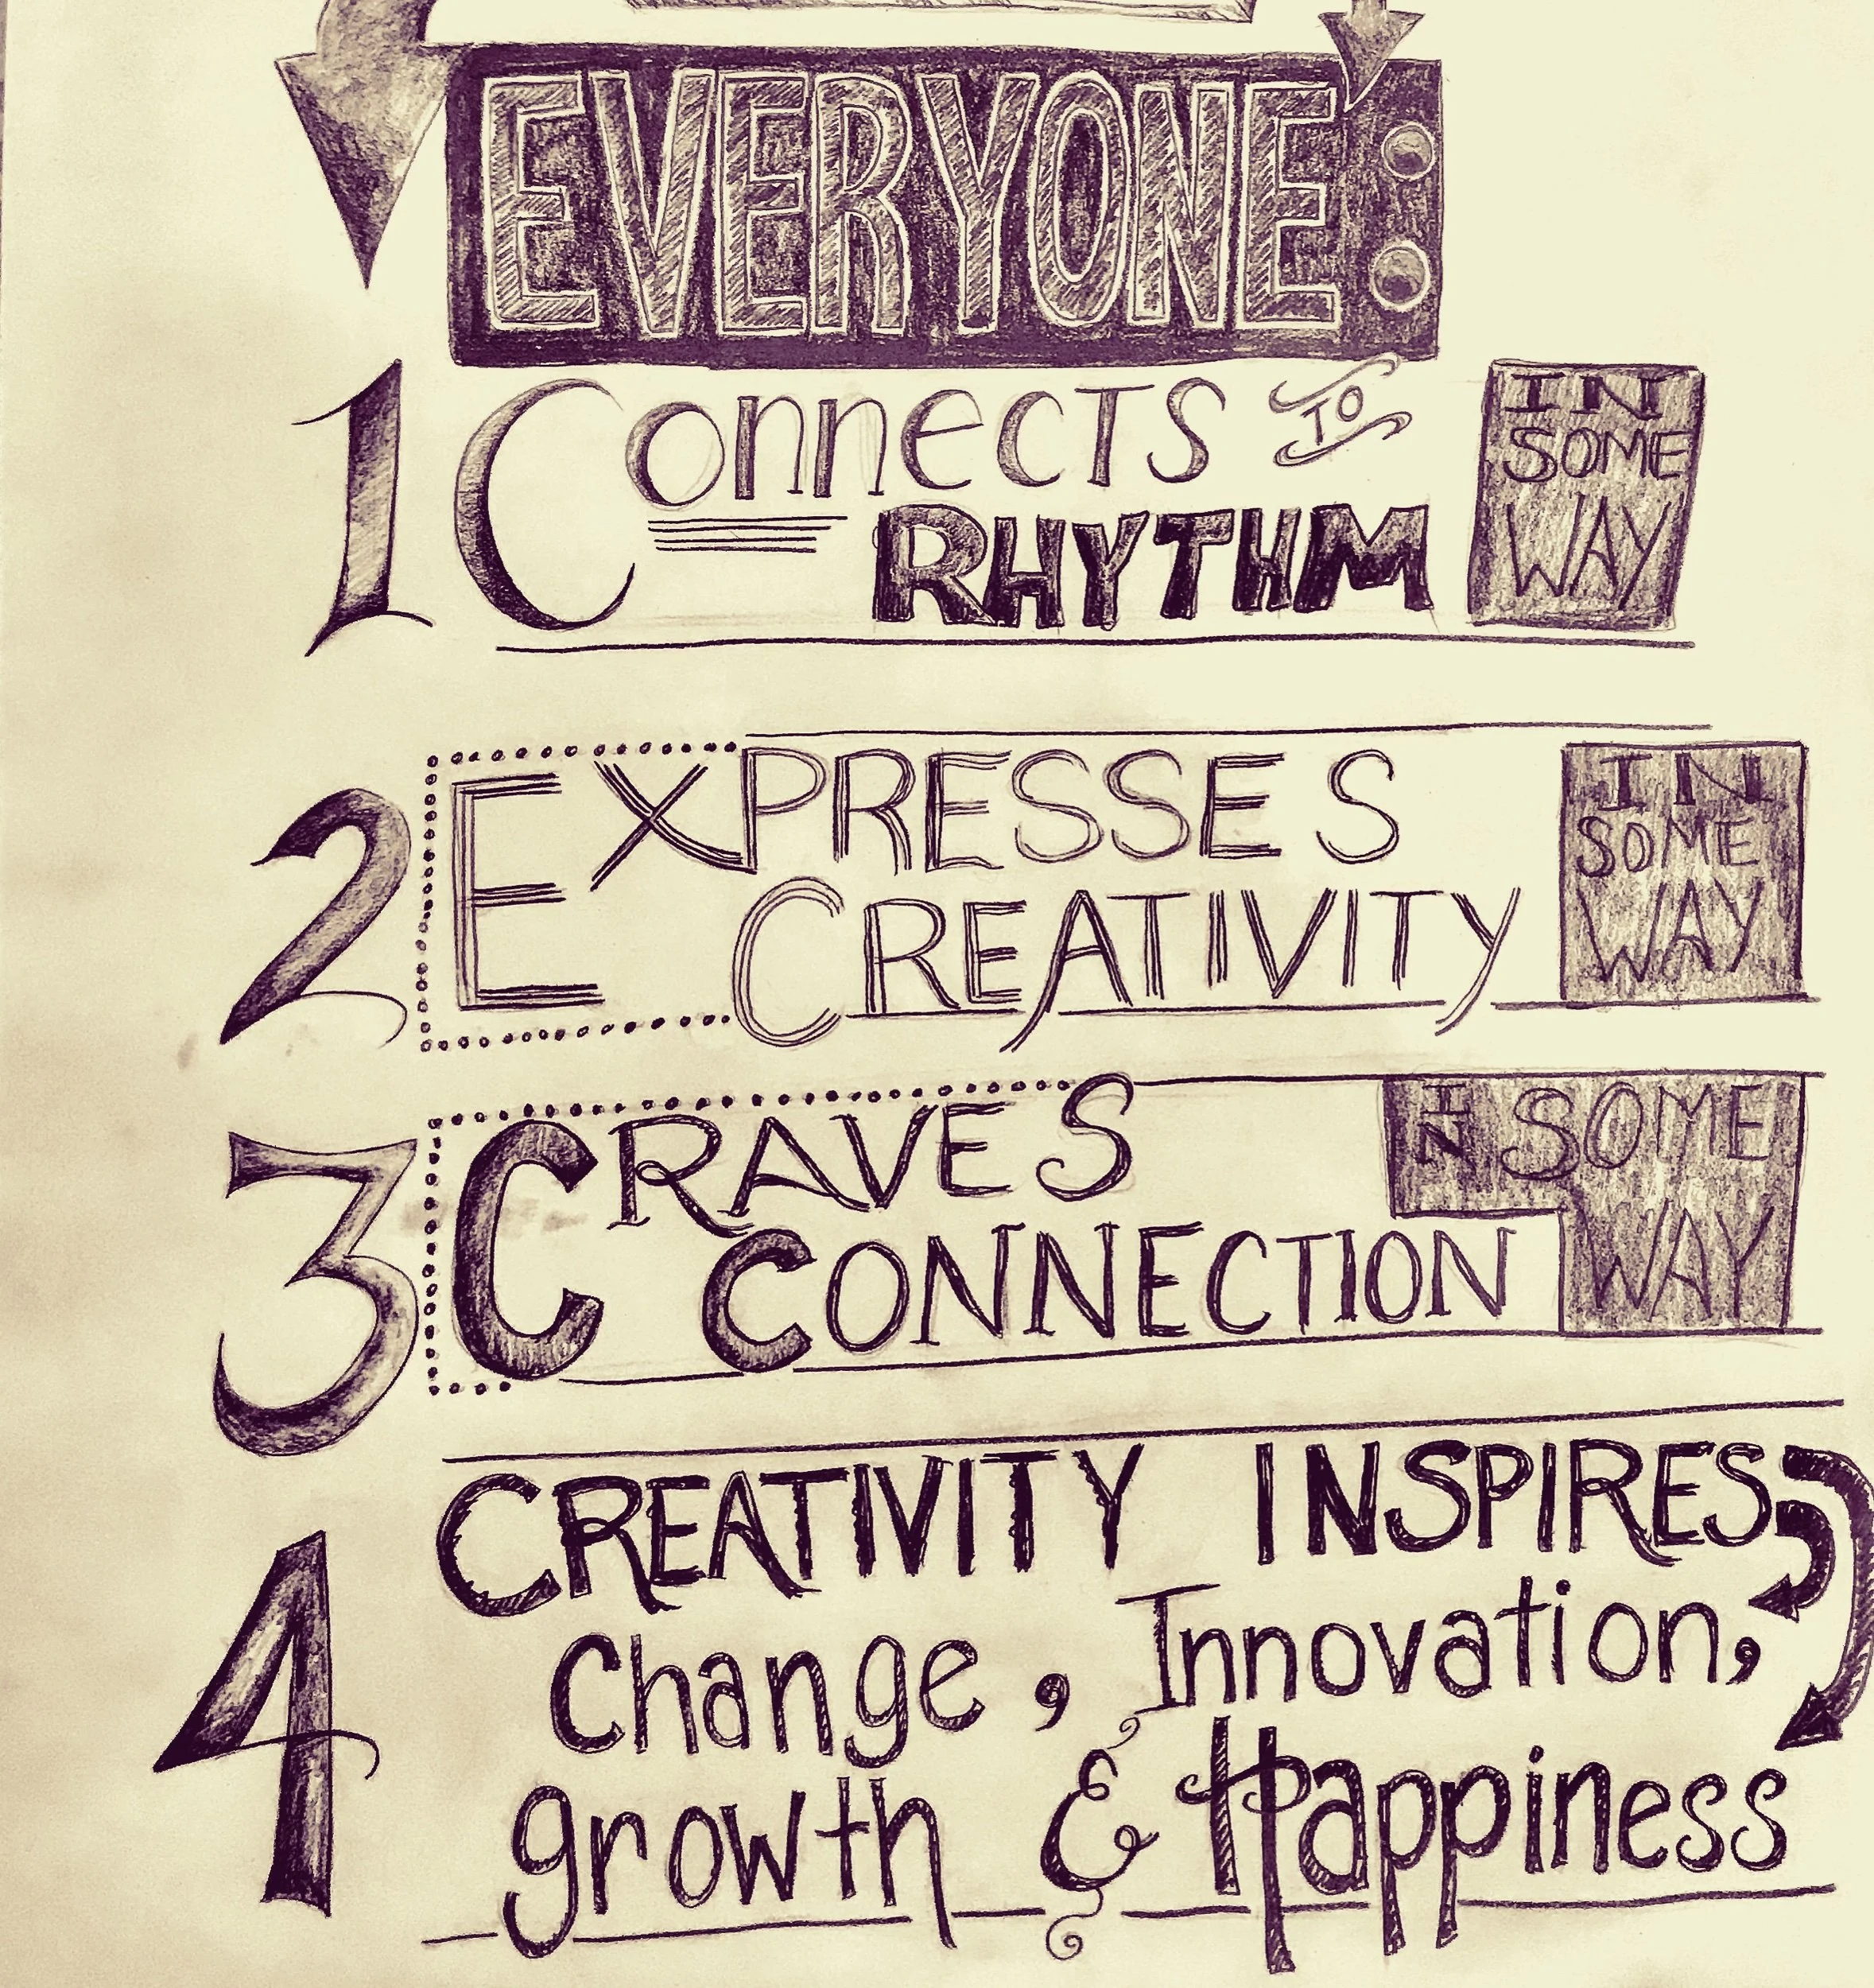 EVERYONE:
1 Connects TO IN SOME WAY
RHYTHM
2 EXPRESSES IN SOME WAY
CREATIVITY
3 CRAVES IN SOME WAY
CONNECTION
4 CREATIVITY INSPIRES
Change, Innovation,
growth & Happiness